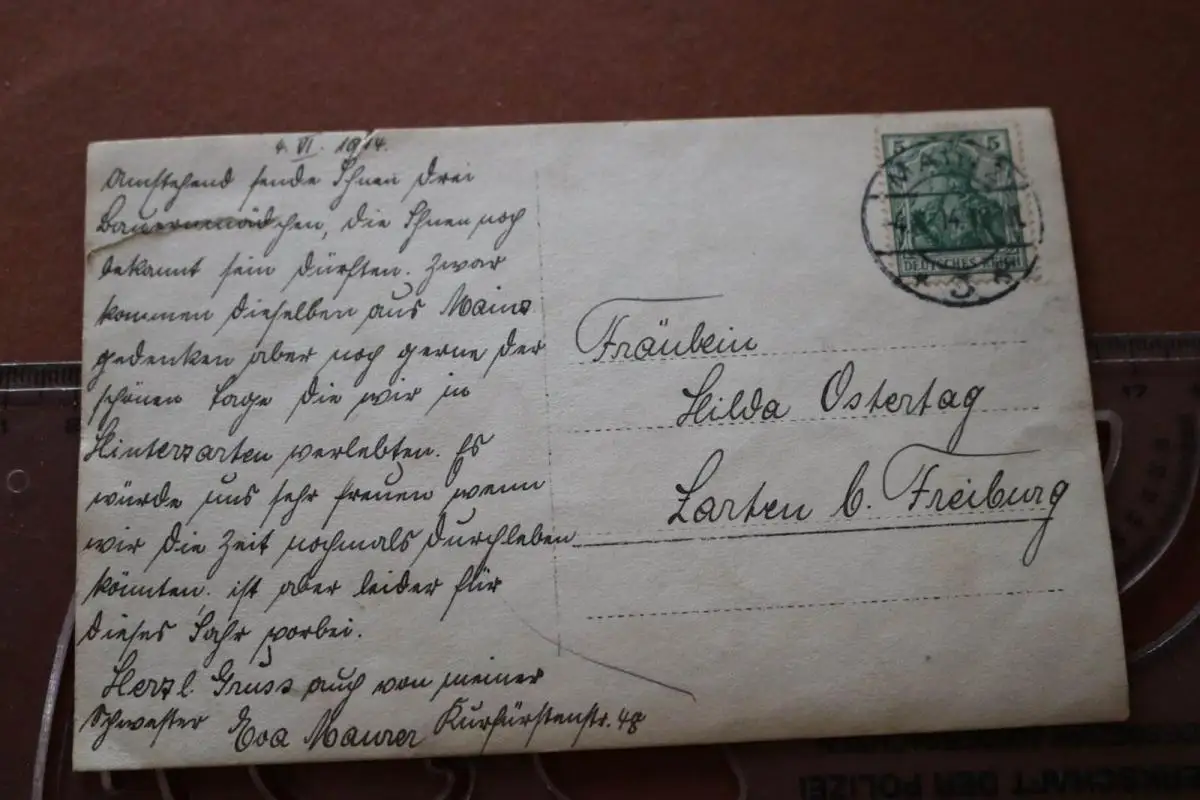 4. VI. 1914.
Umstehend sende Ihnen drei
Bauernmädchen, die Ihnen noch
bekannt sein dürften. Zwar
kommen dieselben aus Mainz
gedenken aber noch gerne der
schönen Tage die wir in
Hinterzarten verlebten. Es
würde uns sehr freuen wenn
wir die Zeit nochmals durchleben
könnten, ist aber leider für
dieses Jahr vorbei.
Herzl. Gruss auch von meiner
Schwester Eva Maurer Kurfürstenstr. 48
5 5
DEUTSCHES REICH
MAINZ
Fräulein
Hilda Ostertag
Zarten b. Freiburg
17
GEWERKSCHAFT DER POLIZEI